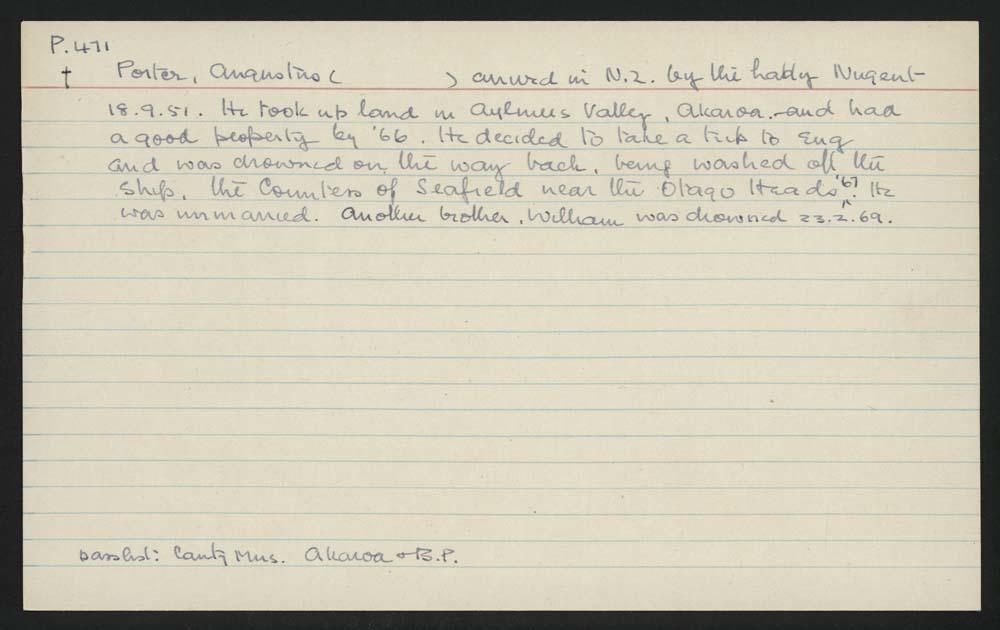 P.471
† Porter, Augustus (          ) arrived in N.Z. by the Lady Nugent
18.9.51. He took up land in Aylmers Valley, Akaroa and had
a good property by '66. He decided to take a trip to Eng
and was drowned on the way back, being washed off the
ship, the Countess of Seafield near the Otago Heads '67. He
was unmarried. Another brother, William was drowned 23.2.69.
passlist: Canty Mus. Akaroa + B.P.